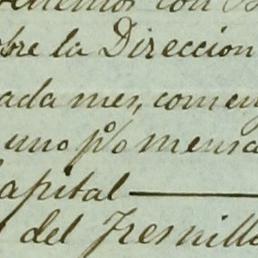 bre la Direccion
ada mes, comen
uno p% mensu
apital
del Fresnill